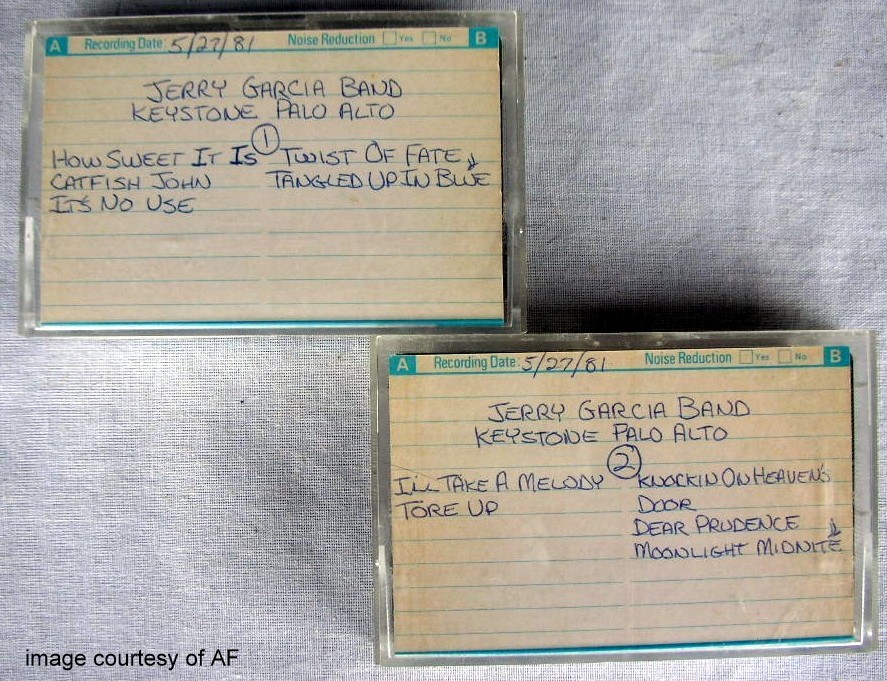 A Recording Date: 5/27/81 Noise Reduction Yes No B
JERRY GARCIA BAND
KEYSTONE PALO ALTO
1
HOW SWEET IT IS TWIST OF FATE ↓
CATFISH JOHN TANGLED UP IN BLUE
IT'S NO USE
A Recording Date: 5/27/81 Noise Reduction Yes No B
JERRY GARCIA BAND
KEYSTONE PALO ALTO
2
I'LL TAKE A MELODY KNOCKIN ON HEAVEN'S
TORE UP DOOR
DEAR PRUDENCE ↓
MOONLIGHT MIDNITE
image courtesy of AF